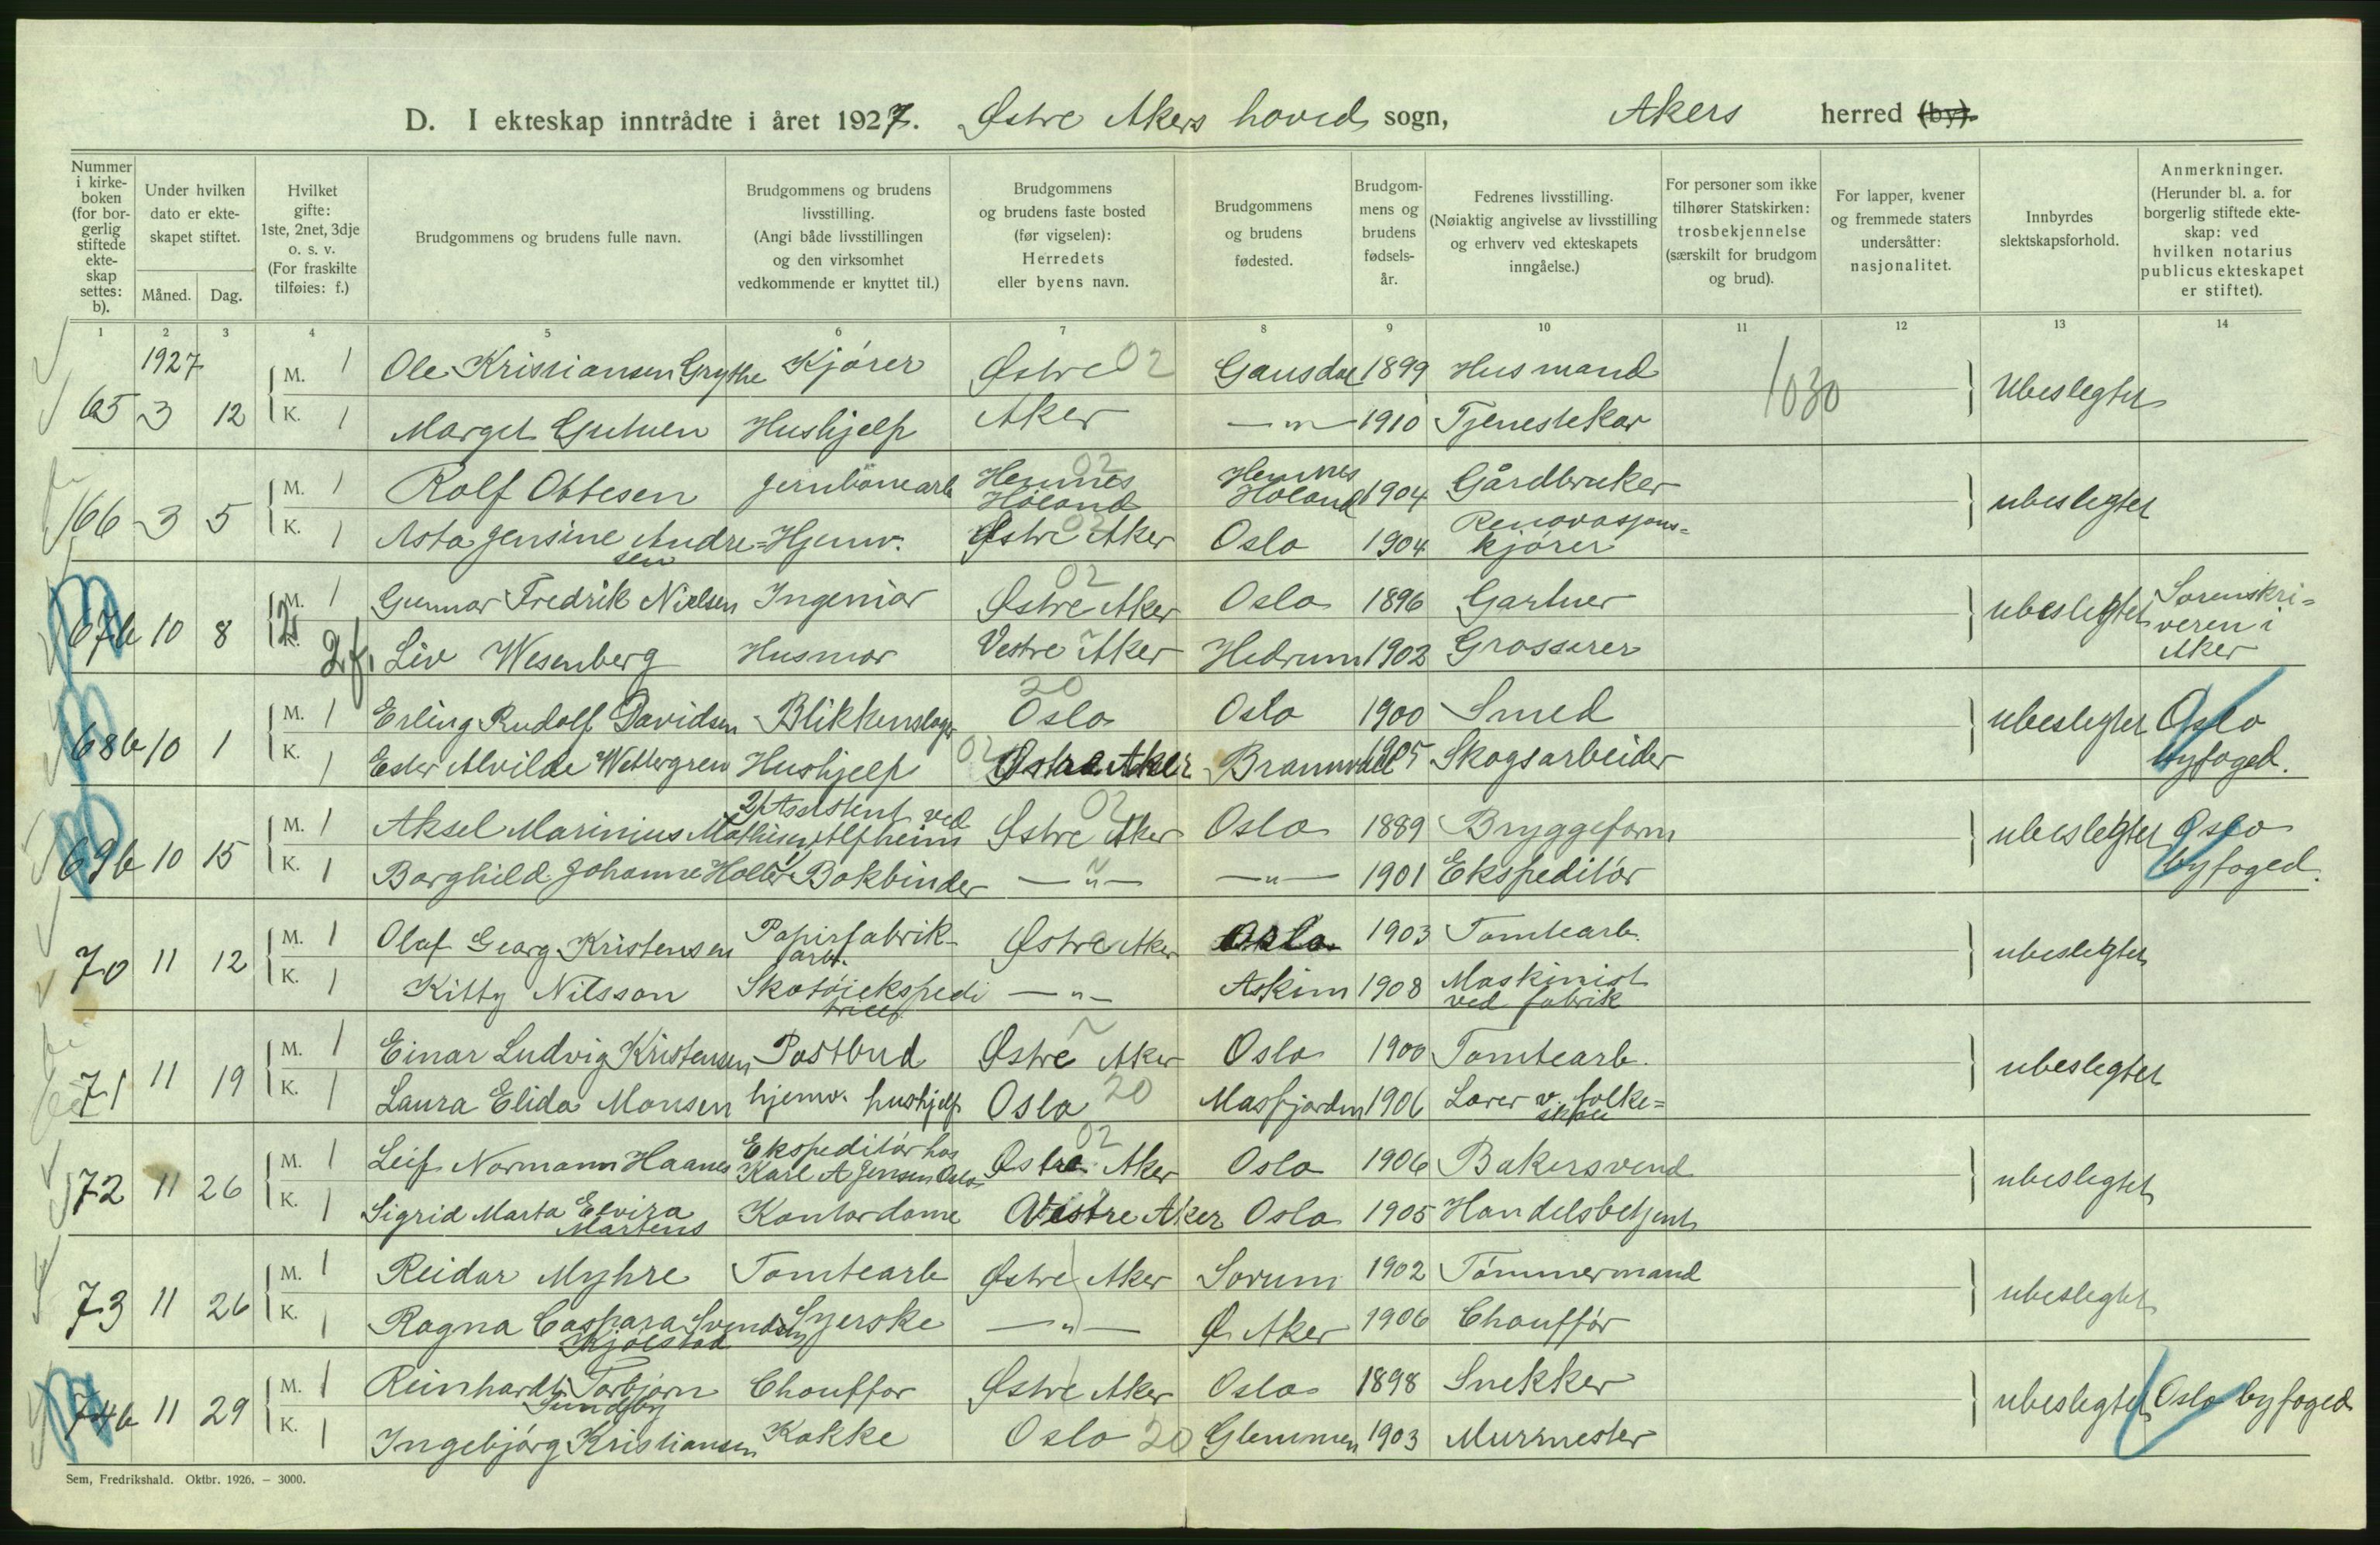 D. I ekteskap inntrådte i året 1927. Østre Akers hoved sogn, Akers herred (by).
Nummer i kirkeboken (for borgerlig stiftede ekteskap settes: b).
Under hvilken dato er ekteskapet stiftet.
Måned. Dag.
Hvilket gifte: 1ste, 2net, 3dje o. s. v. (For fraskilte tilføies: f.)
Brudgommens og brudens fulle navn.
Brudgommens og brudens livsstilling. (Angi både livsstillingen og den virksomhet vedkommende er knyttet til.)
Brudgommens og brudens faste bosted (før vigselen): Herredets eller byens navn.
Brudgommens og brudens fødested.
Brudgommens og brudens fødselsår.
Fedrenes livsstilling. (Nøiaktig angivelse av livsstilling og erhverv ved ekteskapets inngåelse.)
For personer som ikke tilhører Statskirken: trosbekjennelse (særskilt for brudgom og brud).
For lapper, kvener og fremmede staters undersåtter: nasjonalitet.
Innbyrdes slektskapsforhold.
Anmerkninger. (Herunder bl. a. for borgerlig stiftede ekteskap: ved hvilken notarius publicus ekteskapet er stiftet).
1 2 3 4 5 6 7 8 9 10 11 12 13 14
1927
M. 1 Ole Kristiansen Grythe Kjörer Østre 02 Gausdal 1899 Husmand 1030
65 3 12 K. 1 Margit Gutuen Hushjelp Aker —"— 1910 Tjenestekar Ubeslegtet
M. 1 Rolf Ottesen Jernbanearb Hemnes Höland 02 Hemnes Höland 1904 Gårdbruker
66 3 5 K. 1 Asta Jensine Andre=sen Hjemv. Østre Aker 02 Oslo 1904 Renovasjons=kjörer ubeslegtet
M. 1 Gunnar Fredrik Nielsen Ingeniör Østre Aker 02 Oslo 1896 Gartner
67b 10 8 K. 2.f. Liv Wesenberg Husmor Vestre Aker Hedrum 1902 Grosserer ubeslegtet Sorenskri=veren i Aker
M. 1 Erling Rudolf Davidsen Blikkenslager Oslo 20 Oslo 1900 Smed
68b 10 1 K. 1 Ester Alvilde Wettergren Hushjelp 02 Østre Aker Brannvall 1905 Skogsarbeider ubeslegtet Oslo byfoged.
M. 1 Aksel Marinius Mathisen 2) Assistent ved Alfheim Østre Aker 02 Oslo 1889 Bryggeform
69b 10 15 K. 1 Borghild Johanne Holter Bokbinder —"— —"— 1901 Ekspeditör ubeslegtet Oslo byfoged.
M. 1 Olaf Georg Kristensen Papirfabrik-arb. Østre Aker Oslo 1903 Tomtearb.
70 11 12 K. 1 Kitty Nilsson Skotöiekspeditrice —"— Askim 1908 Maskinist ved fabrik ubeslegtet
M. 1 Einar Ludvig Kristensen Postbud Østre Aker Oslo 1900 Tomtearb.
71 11 19 K. 1 Laura Elida Monsen hjemv. hushjelp Oslo 20 Masfjorden 1906 Lærer v. folke=skole ubeslegtet
M. 1 Leif Normann Haanes Ekspeditör hos Karl A Jensen Oslo Østre Aker 02 Oslo 1906 Bakersvend
72 11 26 K. 1 Sigrid Marta Elvira Martens Kontordame Vestre Aker Oslo 1905 Handelsbetjent ubeslegtet
M. 1 Reidar Myhre Tomtearb Østre Aker Sorum 1902 Tömmermand
73 11 26 K. 1 Ragna Caspara Svendsby Kjölstad Syerske —"— Ø. Aker 1906 Chaufför ubeslegtet
M. 1 Reinhardt Torbjörn Sundby Chauffør Østre Aker Oslo 1898 Snekker
74b 11 29 K. 1 Ingebjörg Kristiansen Kokke Oslo 20 Glemmen 1903 Murmester ubeslegtet Oslo byfoged
Sem, Fredrikshald. Oktbr. 1926. – 3000.